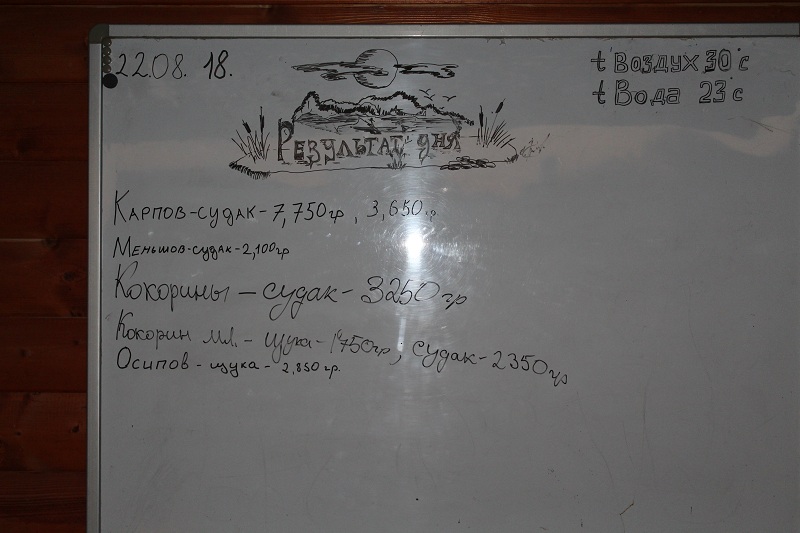 22.08. 18.
t°Воздух 30°с
t Вода 23°с
Результат дня
Карпов-судак-7,750гр, 3,650гр
Меньшов-судак-2,100гр
Кокорины - судак- 3250 гр
Кокорин мл. - щука- 1'750гр, судак-2350гр
Осипов - щука - 2,850 гр.